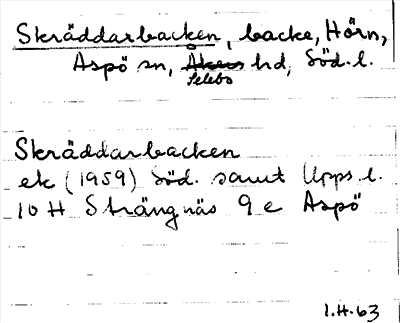 Skräddarbacken, backe, Hörn,
Aspö sn, Åkers hd, Söd. l.
Selebo
Skräddarbacken
ek (1959) Söd. samt Upps l.
10 H Strängnäs 9 e Aspö
I.H. 63